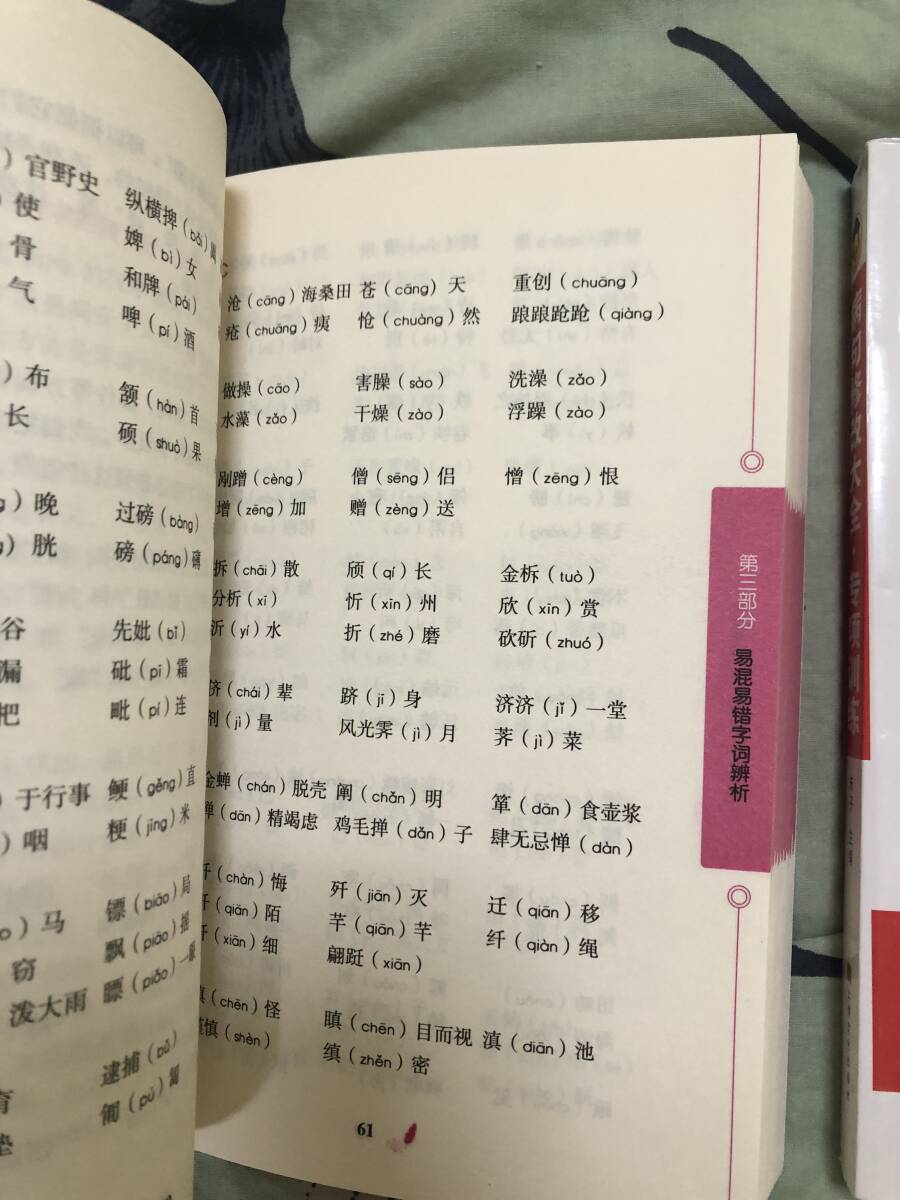 ）官野史 纵横捭（bǎi）阖
使 婢（bì）女
骨 和牌（pái）
气 啤（pí）酒
）布 颔（hàn）首
长 硕（shuò）果
）晚 过磅（bàng）
）胱 磅（páng）礴
谷 先妣（bǐ）
漏 砒（pī）霜
把 毗（pí）连
）于行事 鲠（gěng）直
）咽 粳（jīng）米
）马 镖（biāo）局
窃 飘（piāo）摇
泼大雨 瞟（piǎo）一眼
逮捕（bǔ）
育 匍（pú）匐
垫
沧（cāng）海桑田 苍（cāng）天 重创（chuāng）
疮（chuāng）痍 怆（chuàng）然 踉踉跄跄（qiàng）
做操（cāo） 害臊（sào） 洗澡（zǎo）
水藻（zǎo） 干燥（zào） 浮躁（zào）
剐蹭（cèng） 僧（sēng）侣 憎（zēng）恨
增（zēng）加 赠（zèng）送
拆（chāi）散 颀（qí）长 金柝（tuò）
分析（xī） 忻（xīn）州 欣（xīn）赏
沂（yí）水 折（zhé）磨 砍斫（zhuó）
侪（chái）辈 跻（jī）身 济济（jǐ）一堂
剂（jì）量 风光霁（jì）月 荠（jì）菜
金蝉（chán）脱壳 阐（chǎn）明 箪（dān）食壶浆
殚（dān）精竭虑 鸡毛掸（dǎn）子 肆无忌惮（dàn）
忏（chàn）悔 歼（jiān）灭 迁（qiān）移
阡（qiān）陌 芊（qiān）芊 纤（qiàn）绳
纤（xiān）细 翩跹（xiān）
嗔（chēn）怪 瞋（chēn）目而视 滇（diān）池
谨慎（shèn） 缜（zhěn）密
61
第三部分 易混易错字词辨析
病句修改大全·专项训练
主编